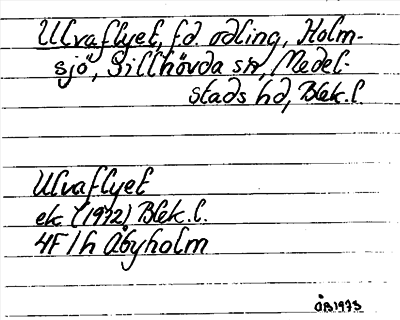 Ulvaflyet, f.d. odling, Holm-
sjö, Sillhövda sn, Medel-
stads hd, Blek.l.
Ulvaflyet
ek. (1972) Blek.l.
4F 1h Åbyholm
ÖB 1973